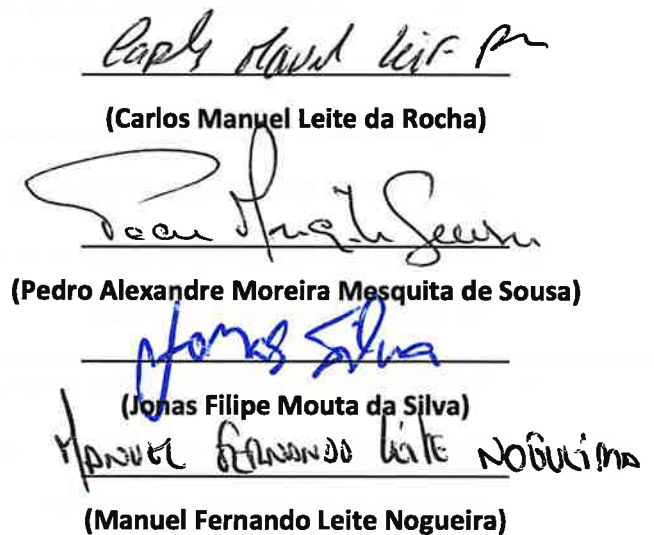 Carlos Manuel Leite
(Carlos Manuel Leite da Rocha)
Mesquita Sousa
(Pedro Alexandre Moreira Mesquita de Sousa)
Jonas Silva
(Jonas Filipe Mouta da Silva)
MANUEL FERNANDO LEITE NOGUEIRA
(Manuel Fernando Leite Nogueira)